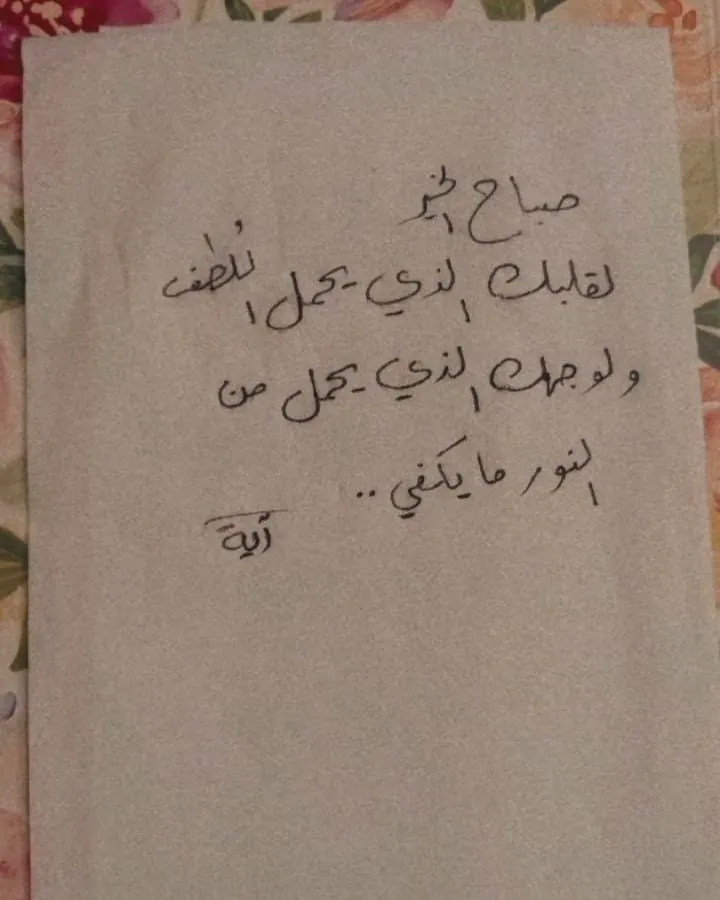 صباح الخير
لقلبك الذي يحمل اللُطف
ولوجهك الذي يحمل من
النور ما يكفي ..
آية